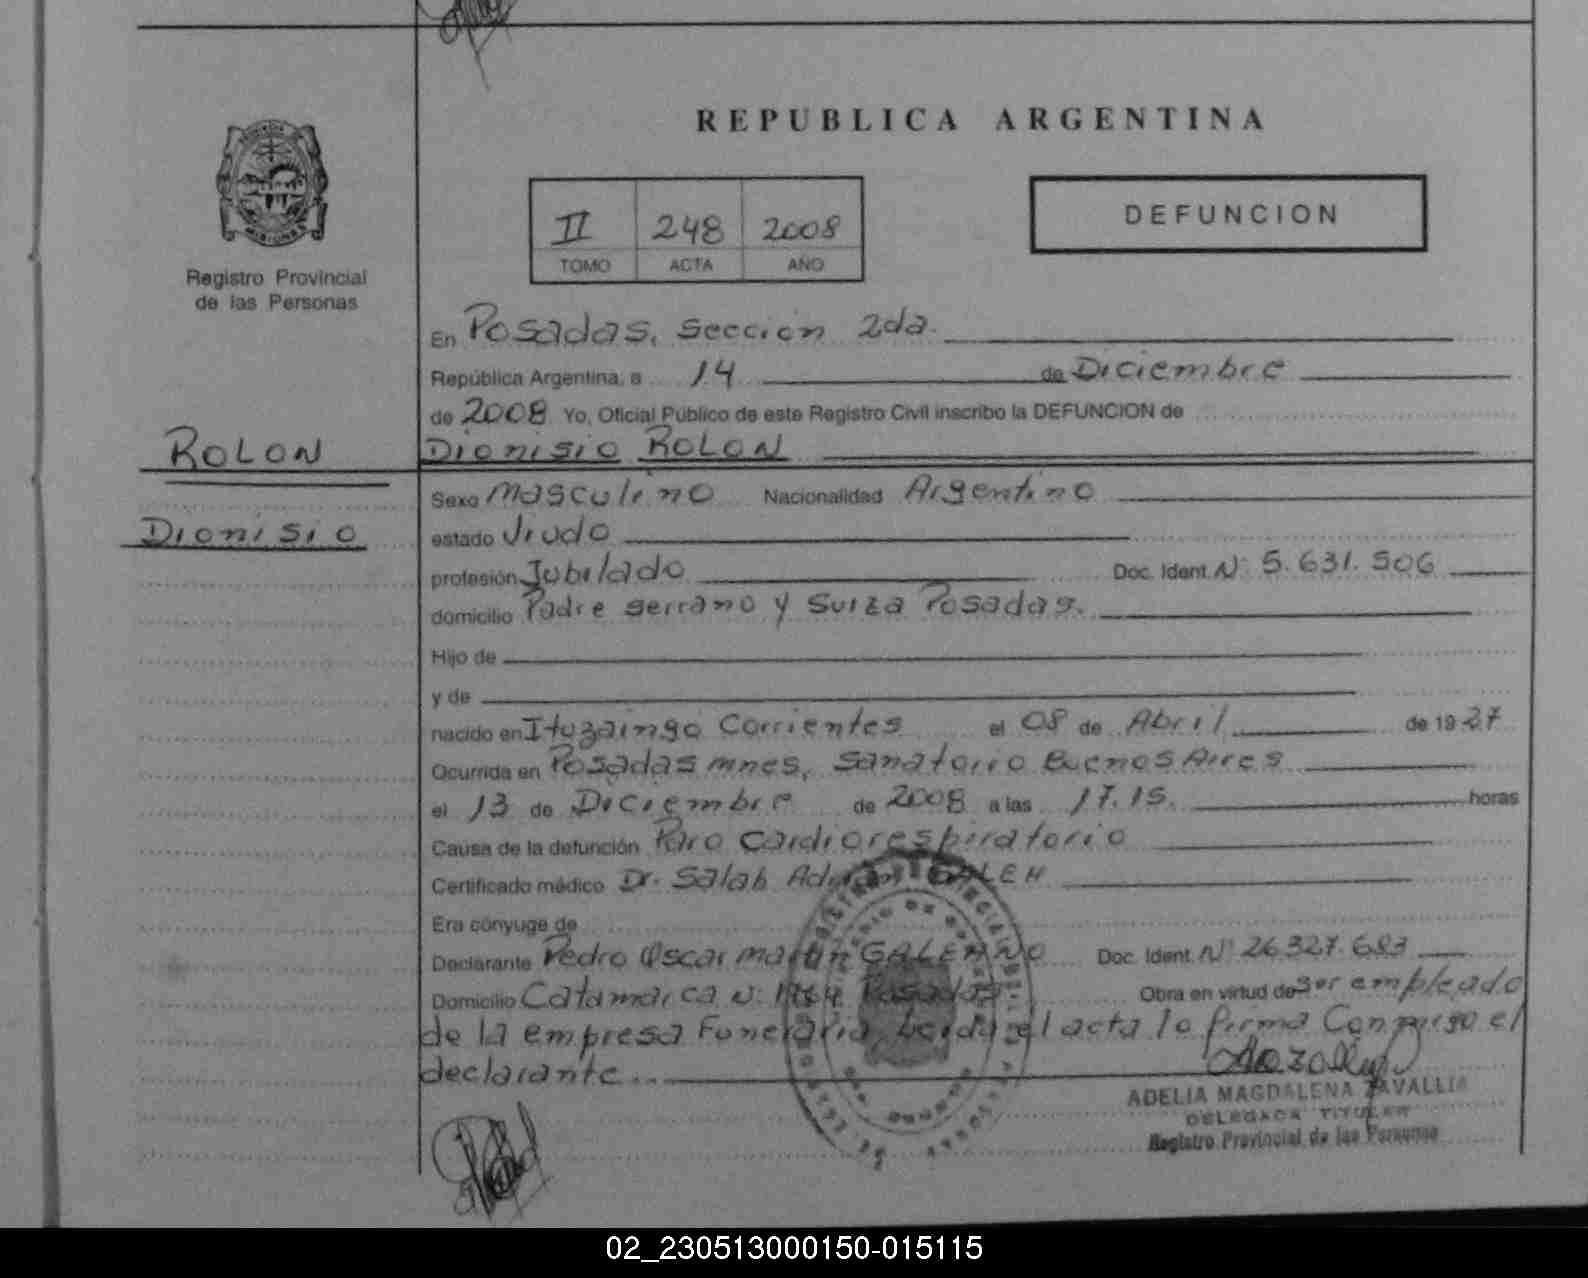 REPUBLICA ARGENTINA
MISIONES
Registro Provincial
de las Personas
II 248 2008
TOMO ACTA AÑO
DEFUNCION
En Posadas, Sección 2da.
República Argentina, a 14 de Diciembre
de 2008 Yo, Oficial Público de este Registro Civil inscribo la DEFUNCION de
ROLON
Dionisio
Dionisio ROLON
Sexo Masculino Nacionalidad Argentino
estado Viudo
profesión Jubilado Doc. Ident. Nº 5.631.506
domicilio Padre Serrano y Suiza Posadas.
Hijo de
y de
nacido en Ituzaingó Corrientes el 08 de Abril de 1927
Ocurrida en Posadas mnes, Sanatorio Buenos Aires
el 13 de Diciembre de 2008 a las 17.15. horas
Causa de la defunción Paro Cardiorespiratorio
Certificado médico Dr. Salah
Era cónyuge de
Declarante Pedro Oscar Martin GALEANO Doc. Ident. Nº 26.327.683
Domicilio Catamarca Nº Posadas Obra en virtud de ser empleado
de la empresa Funeraria, Leída el acta la firma Conmigo el
declarante
ADELIA MAGDALENA ZAVALLIA
DELEGADA TITULAR
Registro Provincial de las Personas
02_230513000150-015115